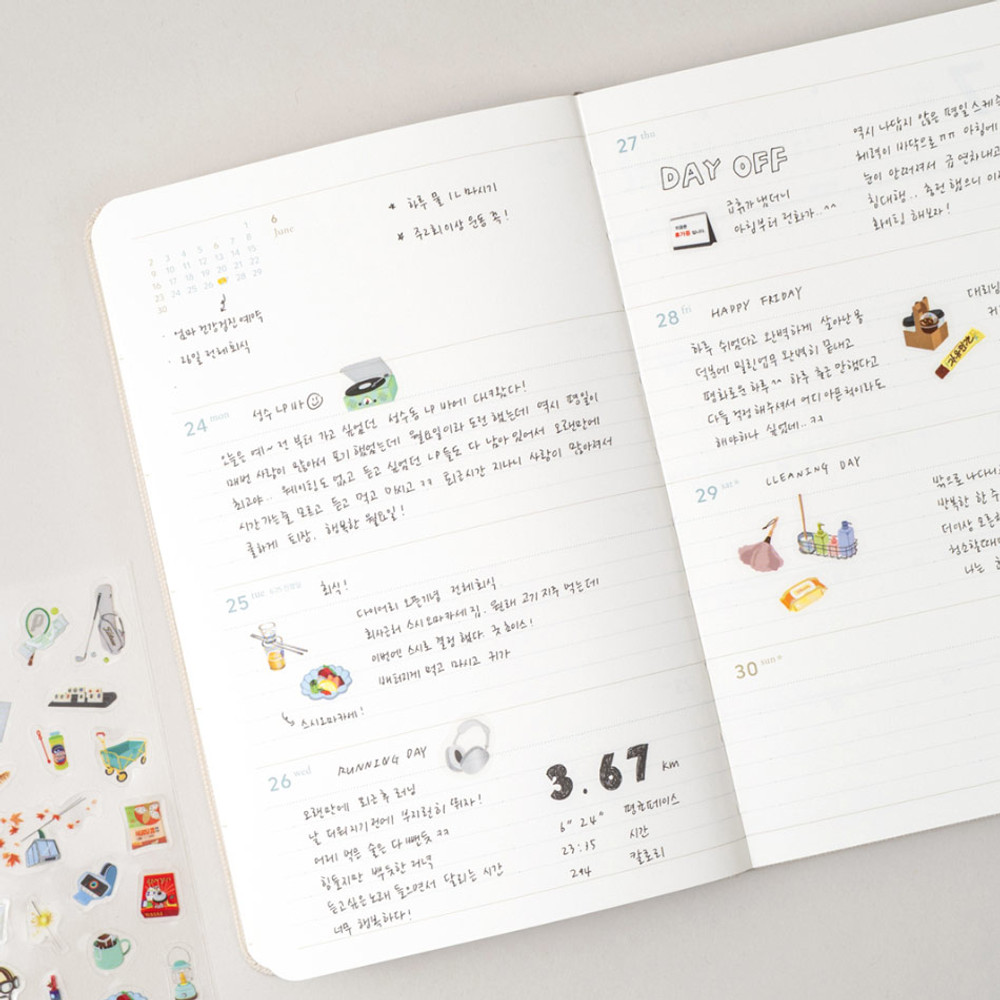 6
June
1
2 3 4 5 6 7 8
9 10 11 12 13 14 15
16 17 18 19 20 21 22
23 24 25 26 28 29
30
* 하루 물 1L 마시기
* 주2회이상 운동 쪽!
· 엄마 건강검진예약
· 26일 전체회식
24 mon 성수 LP 바
오늘은 예~전 부터 가고 싶었던 성수동 LP 바에 다녀왔다!
매번 사람이 많아서 포기했었는데 월요일이라 도전했는데 역시 평일이
최고야.. 웨이팅도 없고 듣고 싶었던 LP들도 다 남아 있어서 오랜만에
시간가는줄 모르고 듣고 먹고 마시고 ㅋㅋ 퇴근시간 지나니 사람이 많아져서
쿨하게 퇴장. 행복한 월요일!
25 tue 회식!
다이어리 오픈기념 전체회식
회사근처 스시오마카세 집. 원래 고기 자주 먹는데
이번엔 스시로 결정했다. 굿 초이스!
배터지게 먹고 마시고 귀가
스시오마카세!
26 wed RUNNING DAY
오랜만에 퇴근후 러닝
날 더워지기전에 부지런히 뛰자!
어제 먹은 술은 다 뺀듯 ㅋㅋ
힘들지만 뿌듯한 저녁
듣고싶은노래 들으면서 달리는 시간
너무 행복하다!
3.67 km
6" 24" 평균페이스
23:15 시간
294 칼로리
27 thu
DAY OFF
급휴가 냈더니
아침부터 전화가..^^
역시 나답지 않은 평일 스케
체력이 바닥으로 ㅠㅠ 아침에
눈이 안떠져서 급 연차내고
침대행.. 충전했으니 이
화이팅 해보자!
28 fri HAPPY FRIDAY
하루 쉬었다고 완벽하게 살아난 몽
덕분에 밀린업무 완벽히 끝내고
평화로운 하루 ^^ 하루 출근 안했다고
다들 걱정 해주셔서 어디 아픈척이라도
해야하나 싶었네.. ㅋㅋ
대리님
29 sat CLEANING DAY
밖으로 나다니
반복한 한 주
더이상 모른
청소할때
나는
30 sun